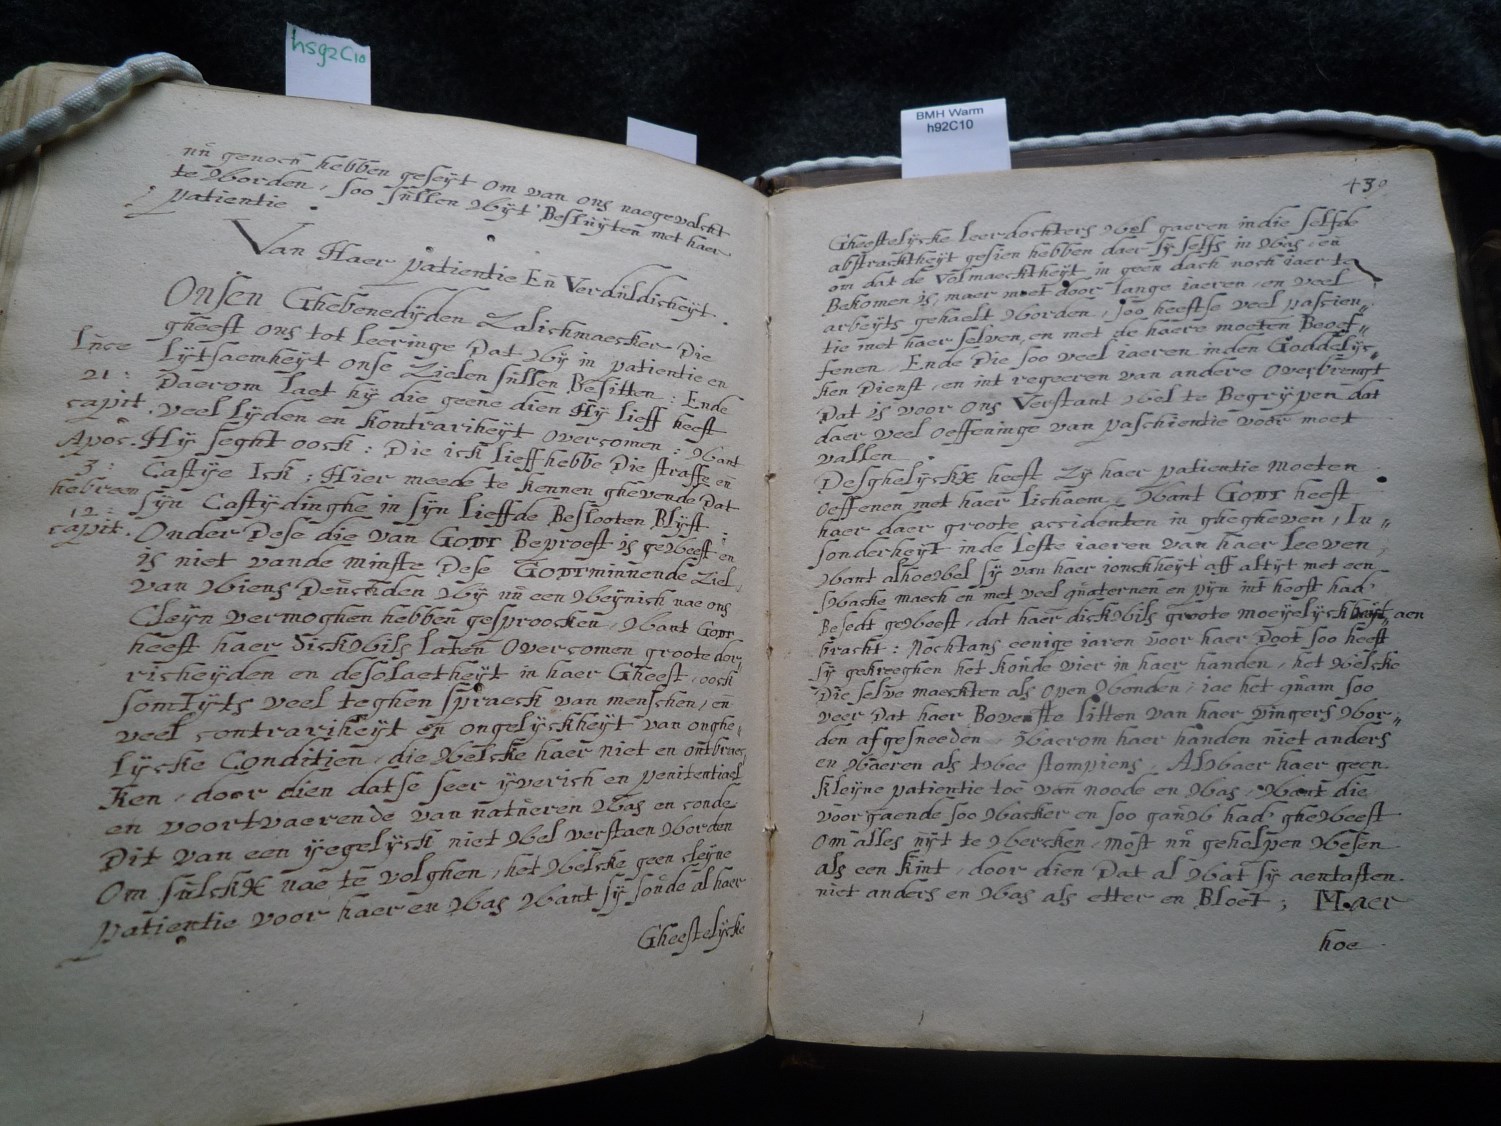 hsg2C10
BMH Warm
h92C10
nũ genoch hebben geseyt om van ons naegevalckt
te worden, soo sullen wyt Besluyten met haer
patientie.
Van Haer patientie En Verduldicheyt.
Onsen Ghebenedyden Zalichmaecker Die
gheeft ons tot leeringe Dat wy in patientie en
lytsaemheyt onse Zielen sullen Besitten: Ende
Daerom laet hy die geene dien Hy lieff heeft
veel lyden en kontrariheyt overcomen: want
Hy seght oock: Die ick lieff hebbe Die straffe en
Castye Ick; Hier meede te kennen ghevende Dat
syn Castydinghe in syn lieffde Beslooten Blyft;
Onder Dese die van Godt Beproeft is geweest en
is niet vande minste Dese Godtminnende Ziel,
van wiens Deuchden wy nu een weynich nae ons
Cleyn vermoghen hebben gesproocken, want Godt
heeft haer Dickwils laten overcomen groote dor„
richeyden en desolaetheyt in haer Gheest, oock
somtyts veel teghen spraeck van menschen, en
veel contrariheyt en ongelyckheyt van onghe„
lycke Conditien, die welcke haer niet en ontbraec„
ken, door dien datse seer yverich en penitentiael
en voortvaerende van natueren was en conde
Dit van een yegelyck niet wel verstaen worden
om sulckx nae te volghen, het welcke geen cleyne
patientie voor haer en was want sy sonde al haer
Gheestelycke
Luce
21:
capit.
Apoc.
3:
hebreen
12:
capit.
439
Gheestelycke leerdochters wel gaeren indie selfde
abstracktheyt gesien hebben daer sy selfs in was, en
om dat de Volmaecktheyt in geen dach noch iaer te
Bekomen is, maer moet door lange iaeren, en veel
arbeyts gehaelt worden, soo heeftse veel pascien„
tie met haer selven, en met de haere moeten Beoef„
fenen. Ende Die soo veel iaeren inden Goddelyc„
ken Dienst, en int regeeren van andere overbrengt
Dat is voor ons Verstant wel te Begrypen dat
daer veel oeffeninge van paschientie voor moet
vallen.
Desghelyckx heeft Zy haer patientie moeten
oeffenen met haer lichaem, want Godt heeft
haer daer groote accidenten in ghegheven, In„
sonderheyt inde leste iaeren van haer leeven,
want alhoewel sy van haer ionckheyt aff altyt met een
swacke maech en met veel quaternen en pyn int hooft had
Besedt geweest, dat haer dickwils groote moeyelyckheyt aen
bracht: Nochtans eenige iaren voor haer Doot soo heeft
sy gekreeghen het koude vier in haer handen, het welcke
Die selve maeckten als open wonden, iae het quam soo
veer Dat haer Bovenste litten van haer vingers wor„
den afgesneeden, Waerom haer handen niet anders
en waeren als twee stompiens, Alwaer haer geen
kleyne patientie toe van noode en was, want die
voorgaende soo wacker en soo gauw had ghewеest
om alles uyt te wercken, most nu geholpen wesen
als een kint, door dien Dat al wat sy aentasten
niet anders en was als etter en Bloet; Maer
hoe